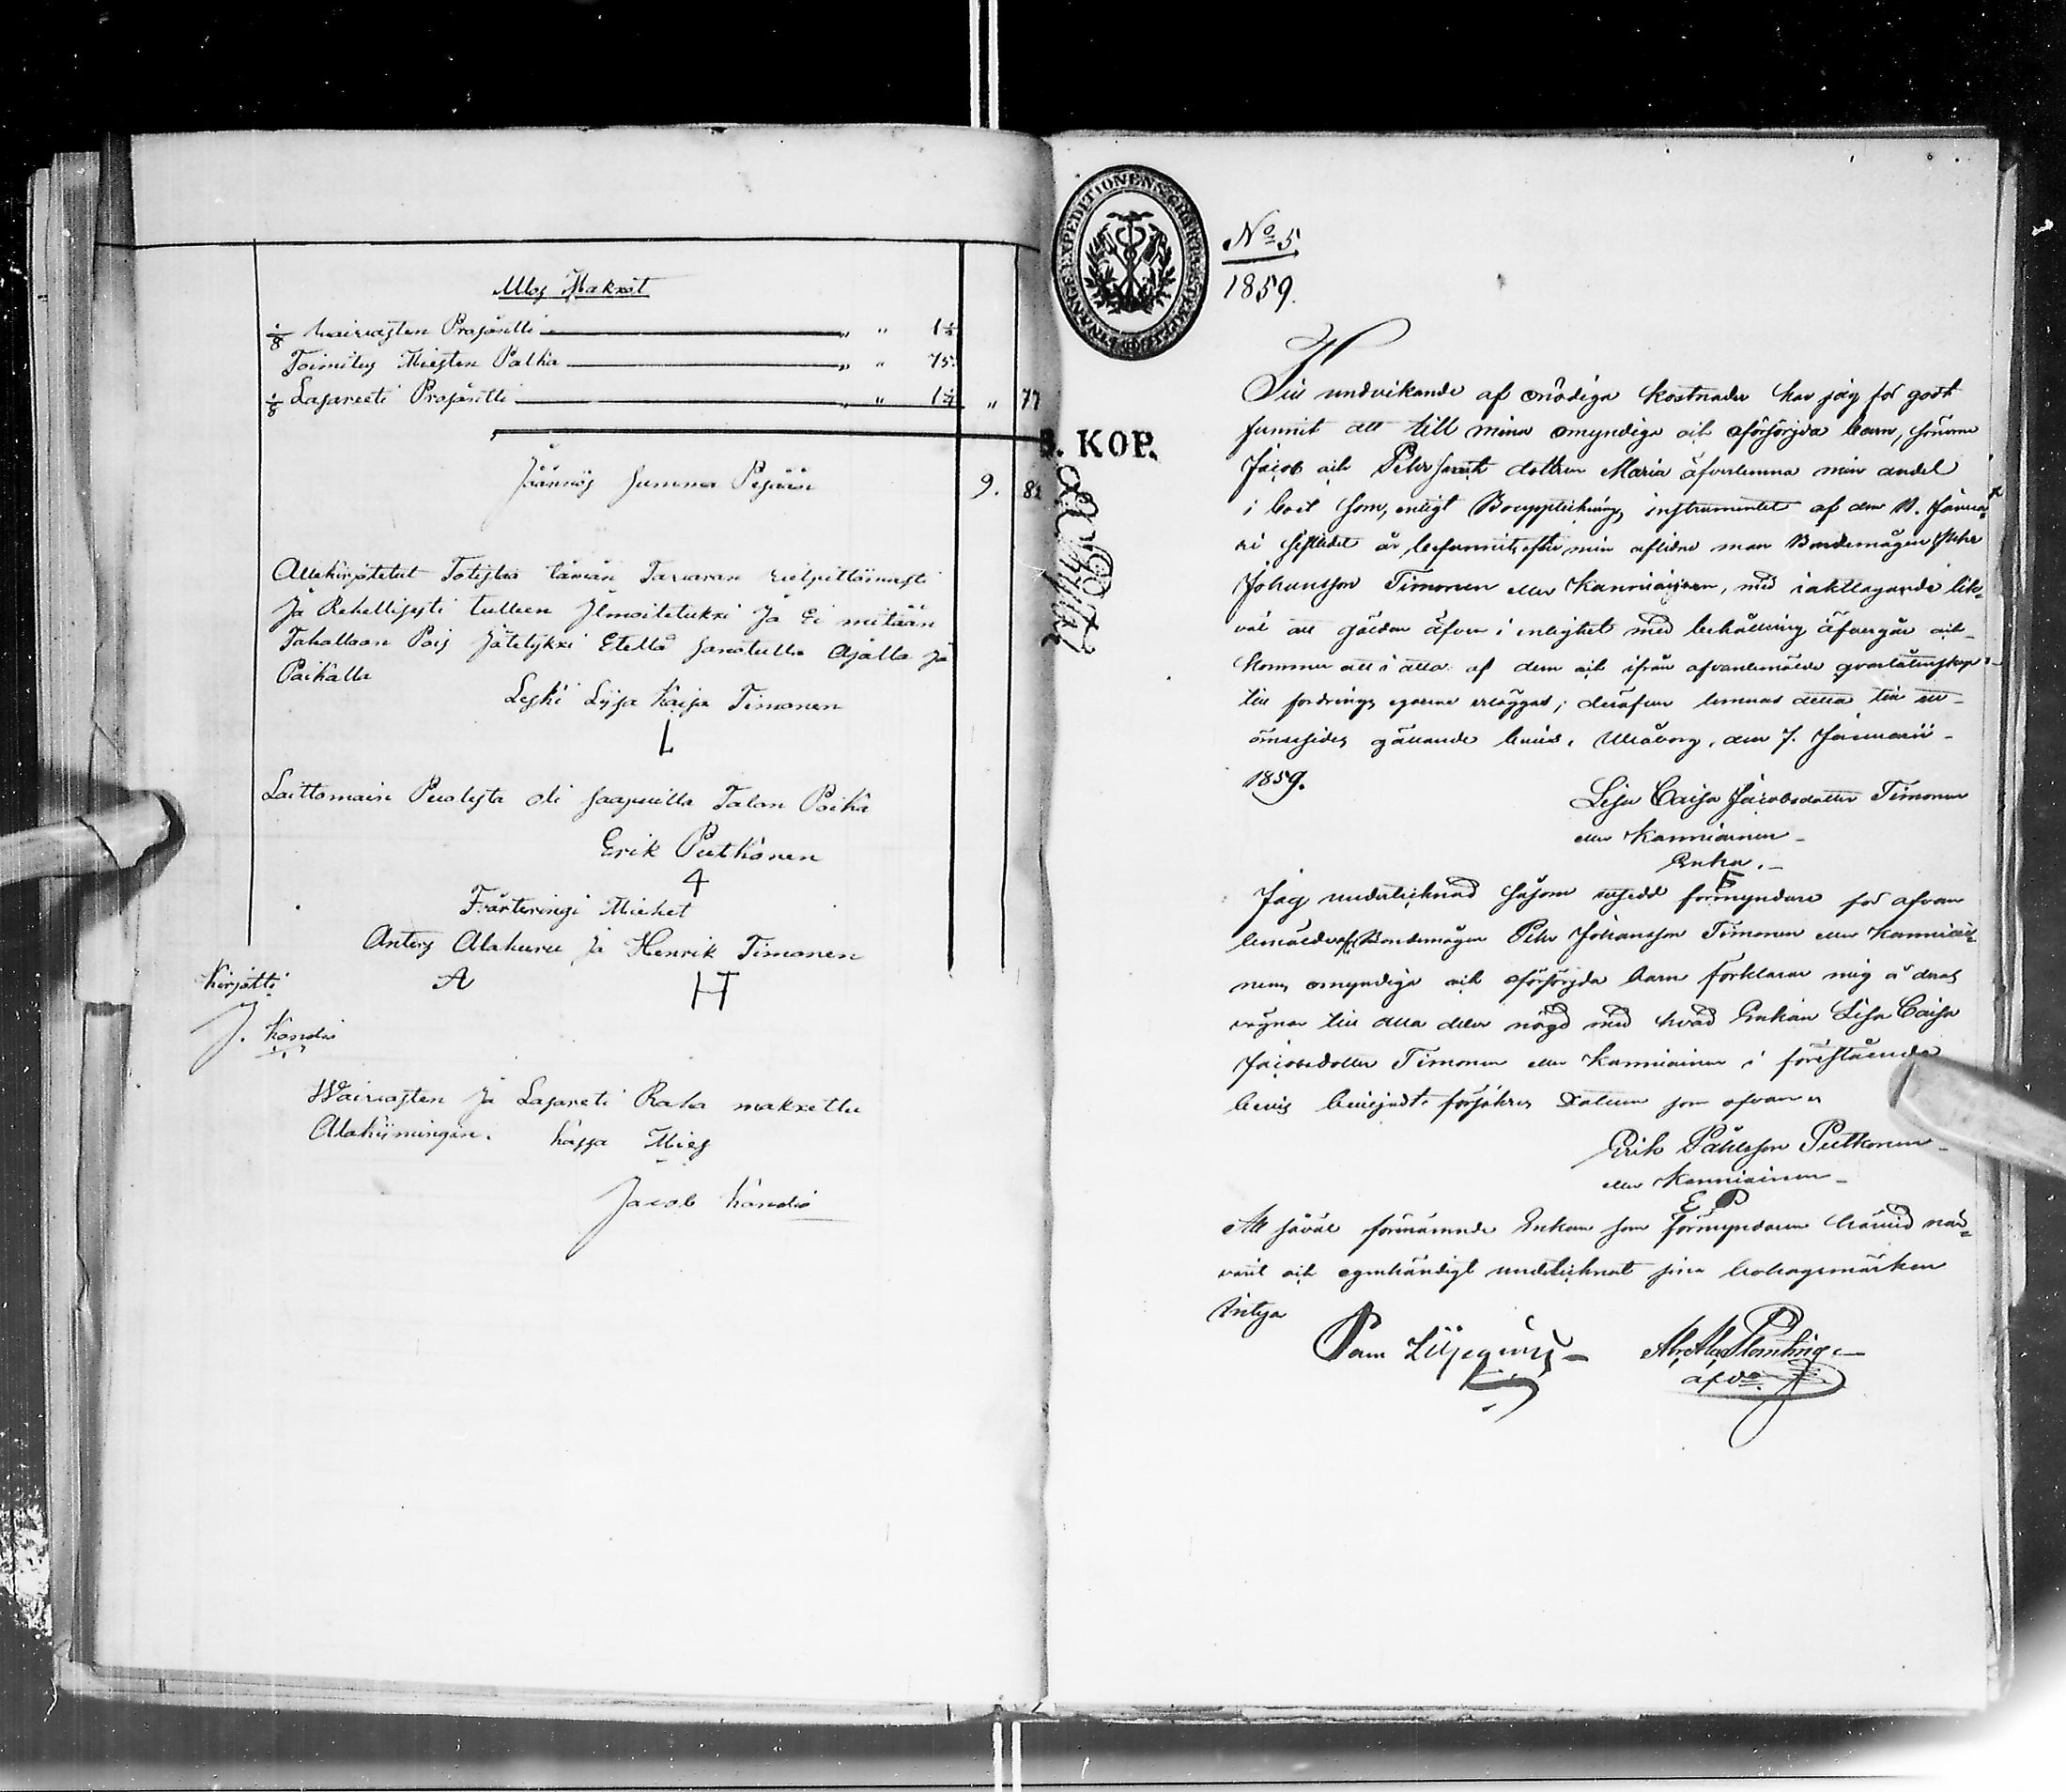 Ulos Maksot
1/8 Waivasten Prosentti — " " 1 1/4
Toimitus Miesten Palka — " " 75.
1/8 Lasareeti Prosentti — " " 1 1/4 " 77
Jäännös Summa Pesään 9. 82
Allekirjotetut Totistaa tämän Tavaran vielpittömasti
Ja Rehellisesti tulleen Jlmoitetuksi Ja Ei mitään
Tahallaan Pois Jätetyksi Etellä Sanotulla Ajalla ja
Paikalla
Leski Lisa Kaisa Timonen
L
Laittomain Puolesta oli Saapuilla Talon Poika
Erik Putkonen
4
Färteringi Miehet
Anters Alakuru ja Henrik Timonen
Kirjotti A H
J. Kondio
Waivasten Ja Lasareti Raha maksettu
Alakiimingin. Kassa Mies
Jacob Kondio
FINANCE EXPEDITIONENS CHARTÆ STEMPEL
No 5
1859.
B. KOP.
Till undvikande af onödiga kostnader har jag för godt
funnit att till mina omyndiga och oförsörjda barn, sönerne
Jacob och Pehr samt dottren Maria äfverlemna min andel
i boet som, enligt Boupptecknings instrumentet af den Janua-
ri sistledet är befunnit efter min aflidne man Bondemågen Pehr
Johansson Timonen eller Kanniainen, med iakttagande lik-
väl att gälden äfven i enlighet med behållning äfvergår och
kommer att i allo af dem och ifrån ofvanbemälde qvarlåtenskap
till fordrings egarne erläggas; derøfver lemnas detta till ett
ömsesides gällande bevis. Uleåborg, den 7. Januarii
1859.
Lisa Caisa Jacobsdotter Timonen
eller Kanniainen
Enka.
Jag undertecknad såsom utsedd förmyndare för ofvan
bemälde Bondemågen Pehr Johansson Timonen eller Kanniai-
nens omyndiga och oförsörjda barn förklarar mig å deras
vägnar till alla delar nögd med hvad Enkan Lisa Caisa
Jacobsdotter Timonen eller Kanniainen i förestående
bevis Datum som ofvan
Erik Påhlsson Putkonen
eller Kanniainen
E P
Att såväl förenämnde Enkan som förmyndaren härvid när-
varit och egenhändigt undertecknat sina bomärken
Intyga